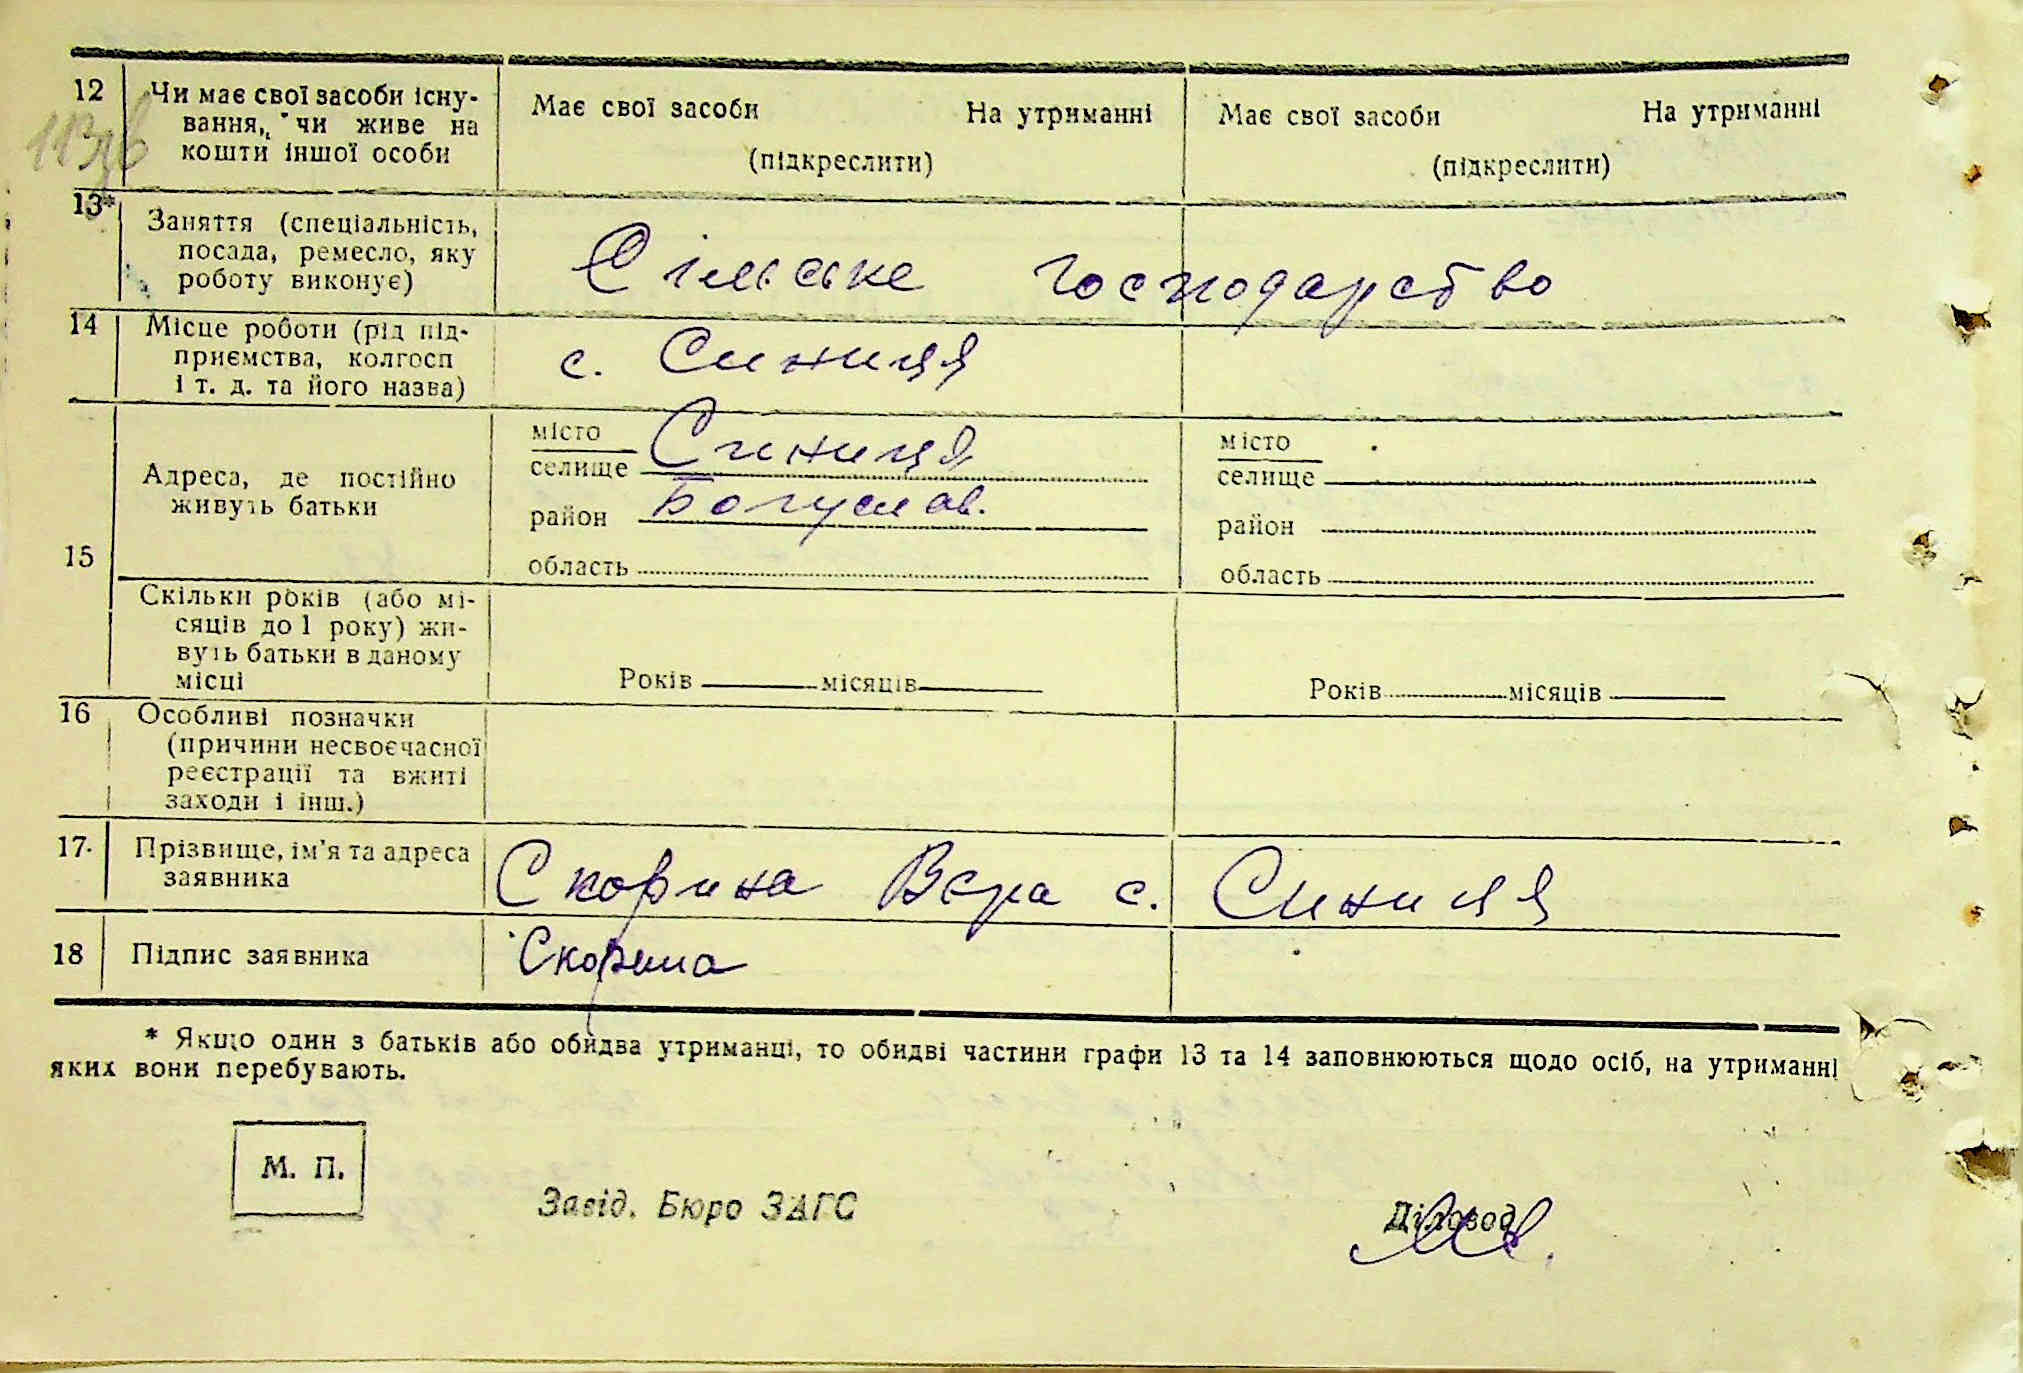 12 Чи має свої засоби існу- Має свої засоби На утриманні Має свої засоби На утриманні
вання, чи живе на
кошти іншої особи (підкреслити) (підкреслити)
13* Заняття (спеціальність,
посада, ремесло, яку Сільське господарство
роботу виконує)
14 Місце роботи (рід під-
приємства, колгосп с. Синиця
і т. д. та його назва)
15 Адреса, де постійно
живуть батьки
місто Синиця місто
селище селище
район Богуслав. район
область область
Скільки років (або мі-
сяців до 1 року) жи-
вуть батьки в даному
місці Років місяців Років місяців
16 Особливі позначки
(причини несвоєчасної
реєстрації та вжиті
заходи і інш.)
17. Прізвище, ім'я та адреса Скорина Вера с. Синиця
заявника
18 Підпис заявника Скорина
* Якщо один з батьків або обидва утриманці, то обидві частини графи 13 та 14 заповнюються щодо осіб, на утриманні
яких вони перебувають.
М. П.
Завід. Бюро ЗАГС Діловод